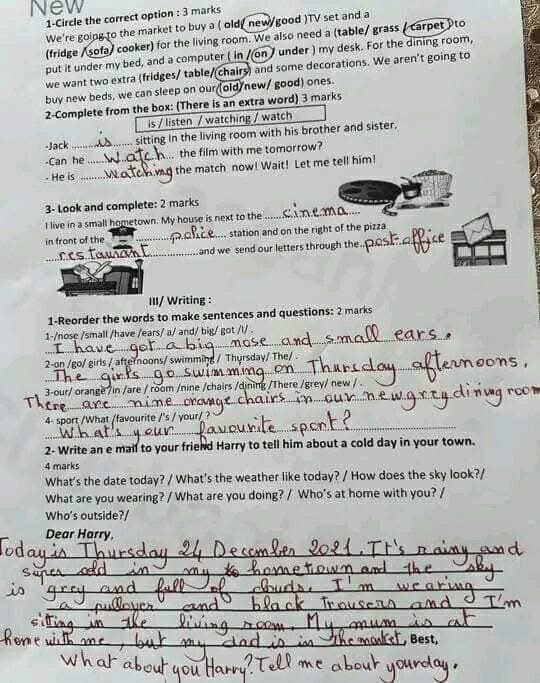 New
1-Circle the correct option : 3 marks
We're going to the market to buy a ( old/ new/good )TV set and a
(fridge /sofa/ cooker) for the living room. We also need a (table/ grass /carpet )to
put it under my bed, and a computer ( in /on/ under ) my desk. For the dining room,
we want two extra (fridges/ table/chairs) and some decorations. We aren't going to
buy new beds, we can sleep on our (old/new/ good) ones.
2-Complete from the box: (There is an extra word) 3 marks
is / listen / watching / watch
-Jack ..........is...... sitting In the living room with his brother and sister.
-Can he ......watch... the film with me tomorrow?
- He is .........watching the match now! Wait! Let me tell him!
3- Look and complete: 2 marks
I live in a small hometown. My house is next to the ......cinema....
in front of the ................police.... station and on the right of the pizza
....restaurant..............and we send our letters through the..post office
III/ Writing :
1-Reorder the words to make sentences and questions: 2 marks
1-/nose /small /have /ears/ a/ and/ big/ got /I/ .
I have got a big nose and small ears.
2-on /go/ girls / afternoons/ swimming / Thursday/ The/ .
The girls go swimming on Thursday afternoons.
3-our/ orange /in /are / room /nine /chairs /dining /There /grey/ new / .
There are nine orange chairs in our new grey dining room
4- sport /What /favourite /'s / your/ ?
What's your favourite sport?
2- Write an e mail to your friend Harry to tell him about a cold day in your town.
4 marks
What's the date today? / What's the weather like today? / How does the sky look?/
What are you wearing? / What are you doing? / Who's at home with you? /
Who's outside?/
Dear Harry,
Today is Thursday 24 December 2021. It's rainy and
super cold in my hometown and the sky
is grey and full of clouds. I'm wearing
a pullover and black trousers and I'm
sitting in the living room. My mum is at
home with me, but my dad is in the market, Best,
What about you Harry? Tell me about your day.